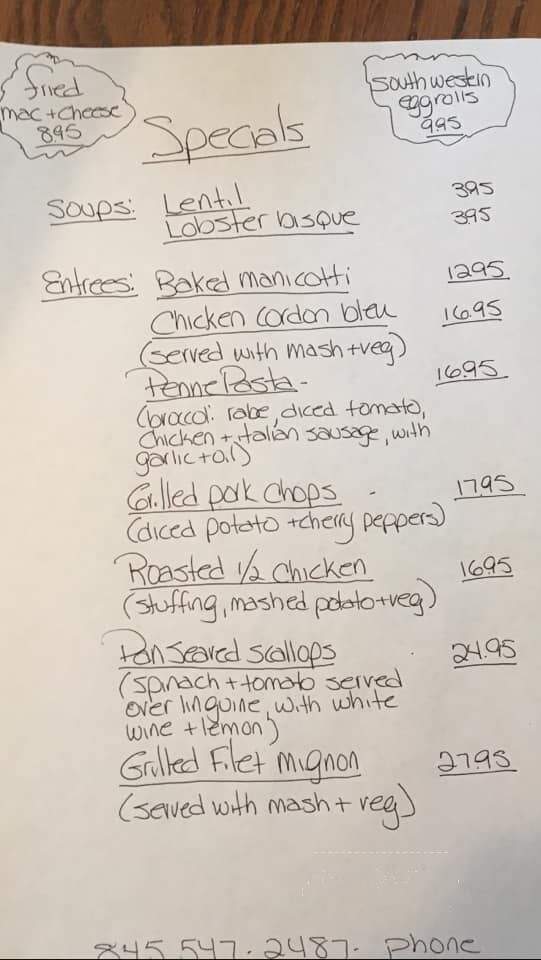 fried
mac + cheese
8.95
southwestern
eggrolls
9.95
Specials
Soups: Lentil 3.95
Lobster bisque 3.95
Entrees: Baked manicotti 12.95
Chicken cordon bleu 16.95
(served with mash + veg)
Penne Pasta - 16.95
(broccoli rabe, diced tomato,
chicken + italian sausage, with
garlic + oil)
Grilled pork chops - 17.95
(diced potato + cherry peppers)
Roasted 1/2 chicken 16.95
(stuffing, mashed potato + veg)
Pan seared scallops 24.95
(spinach + tomato served
over linguine, with white
wine + lemon)
Grilled Filet mignon 27.95
(served with mash + veg)
845.547.2487. phone